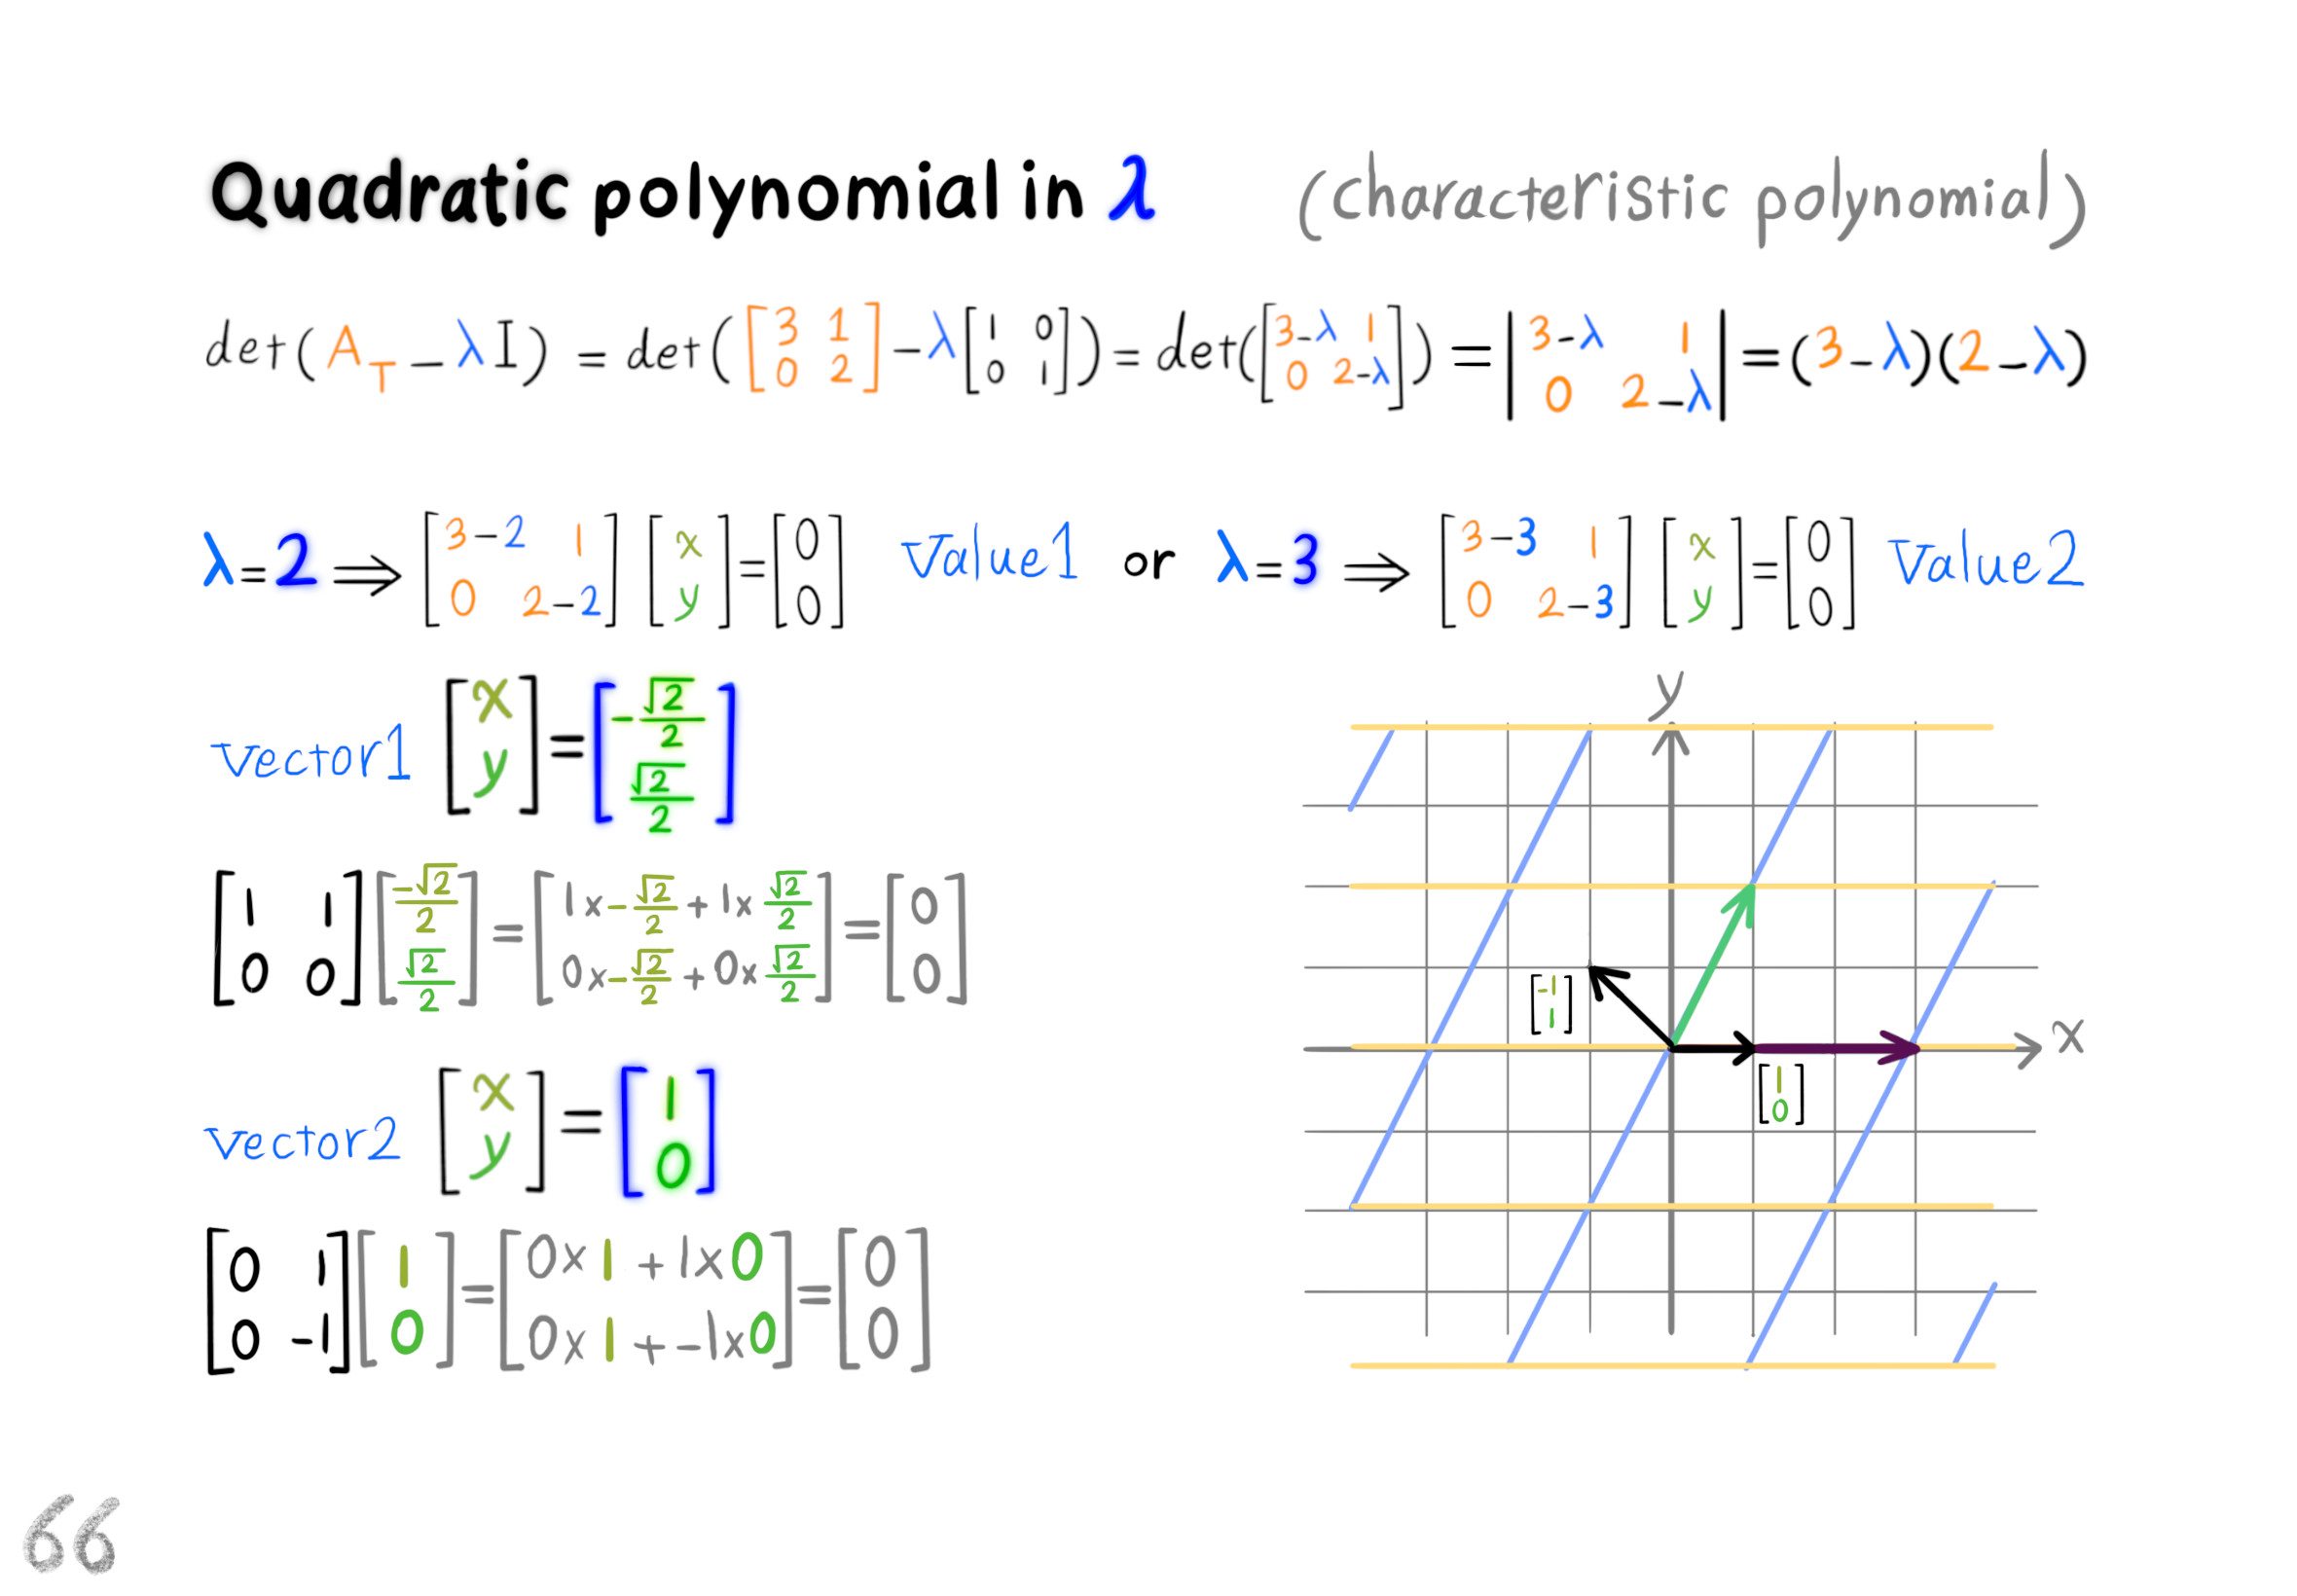 Quadratic polynomial in λ (characteristic polynomial)
det(A_T − λI) = det([3 1; 0 2] − λ[1 0; 0 1]) = det([3−λ 1; 0 2−λ]) = |3−λ 1; 0 2−λ| = (3−λ)(2−λ)
λ=2 ⇒ [3−2 1; 0 2−2] [x; y] = [0; 0] Value1 or λ=3 ⇒ [3−3 1; 0 2−3] [x; y] = [0; 0] Value2
vector1 [x; y] = [−√2/2; √2/2]
[1 1; 0 0] [−√2/2; √2/2] = [1×−√2/2 + 1×√2/2; 0×−√2/2 + 0×√2/2] = [0; 0]
vector2 [x; y] = [1; 0]
[0 1; 0 −1] [1; 0] = [0×1 + 1×0; 0×1 + −1×0] = [0; 0]
y
[−1; 1]
x
[1; 0]
66